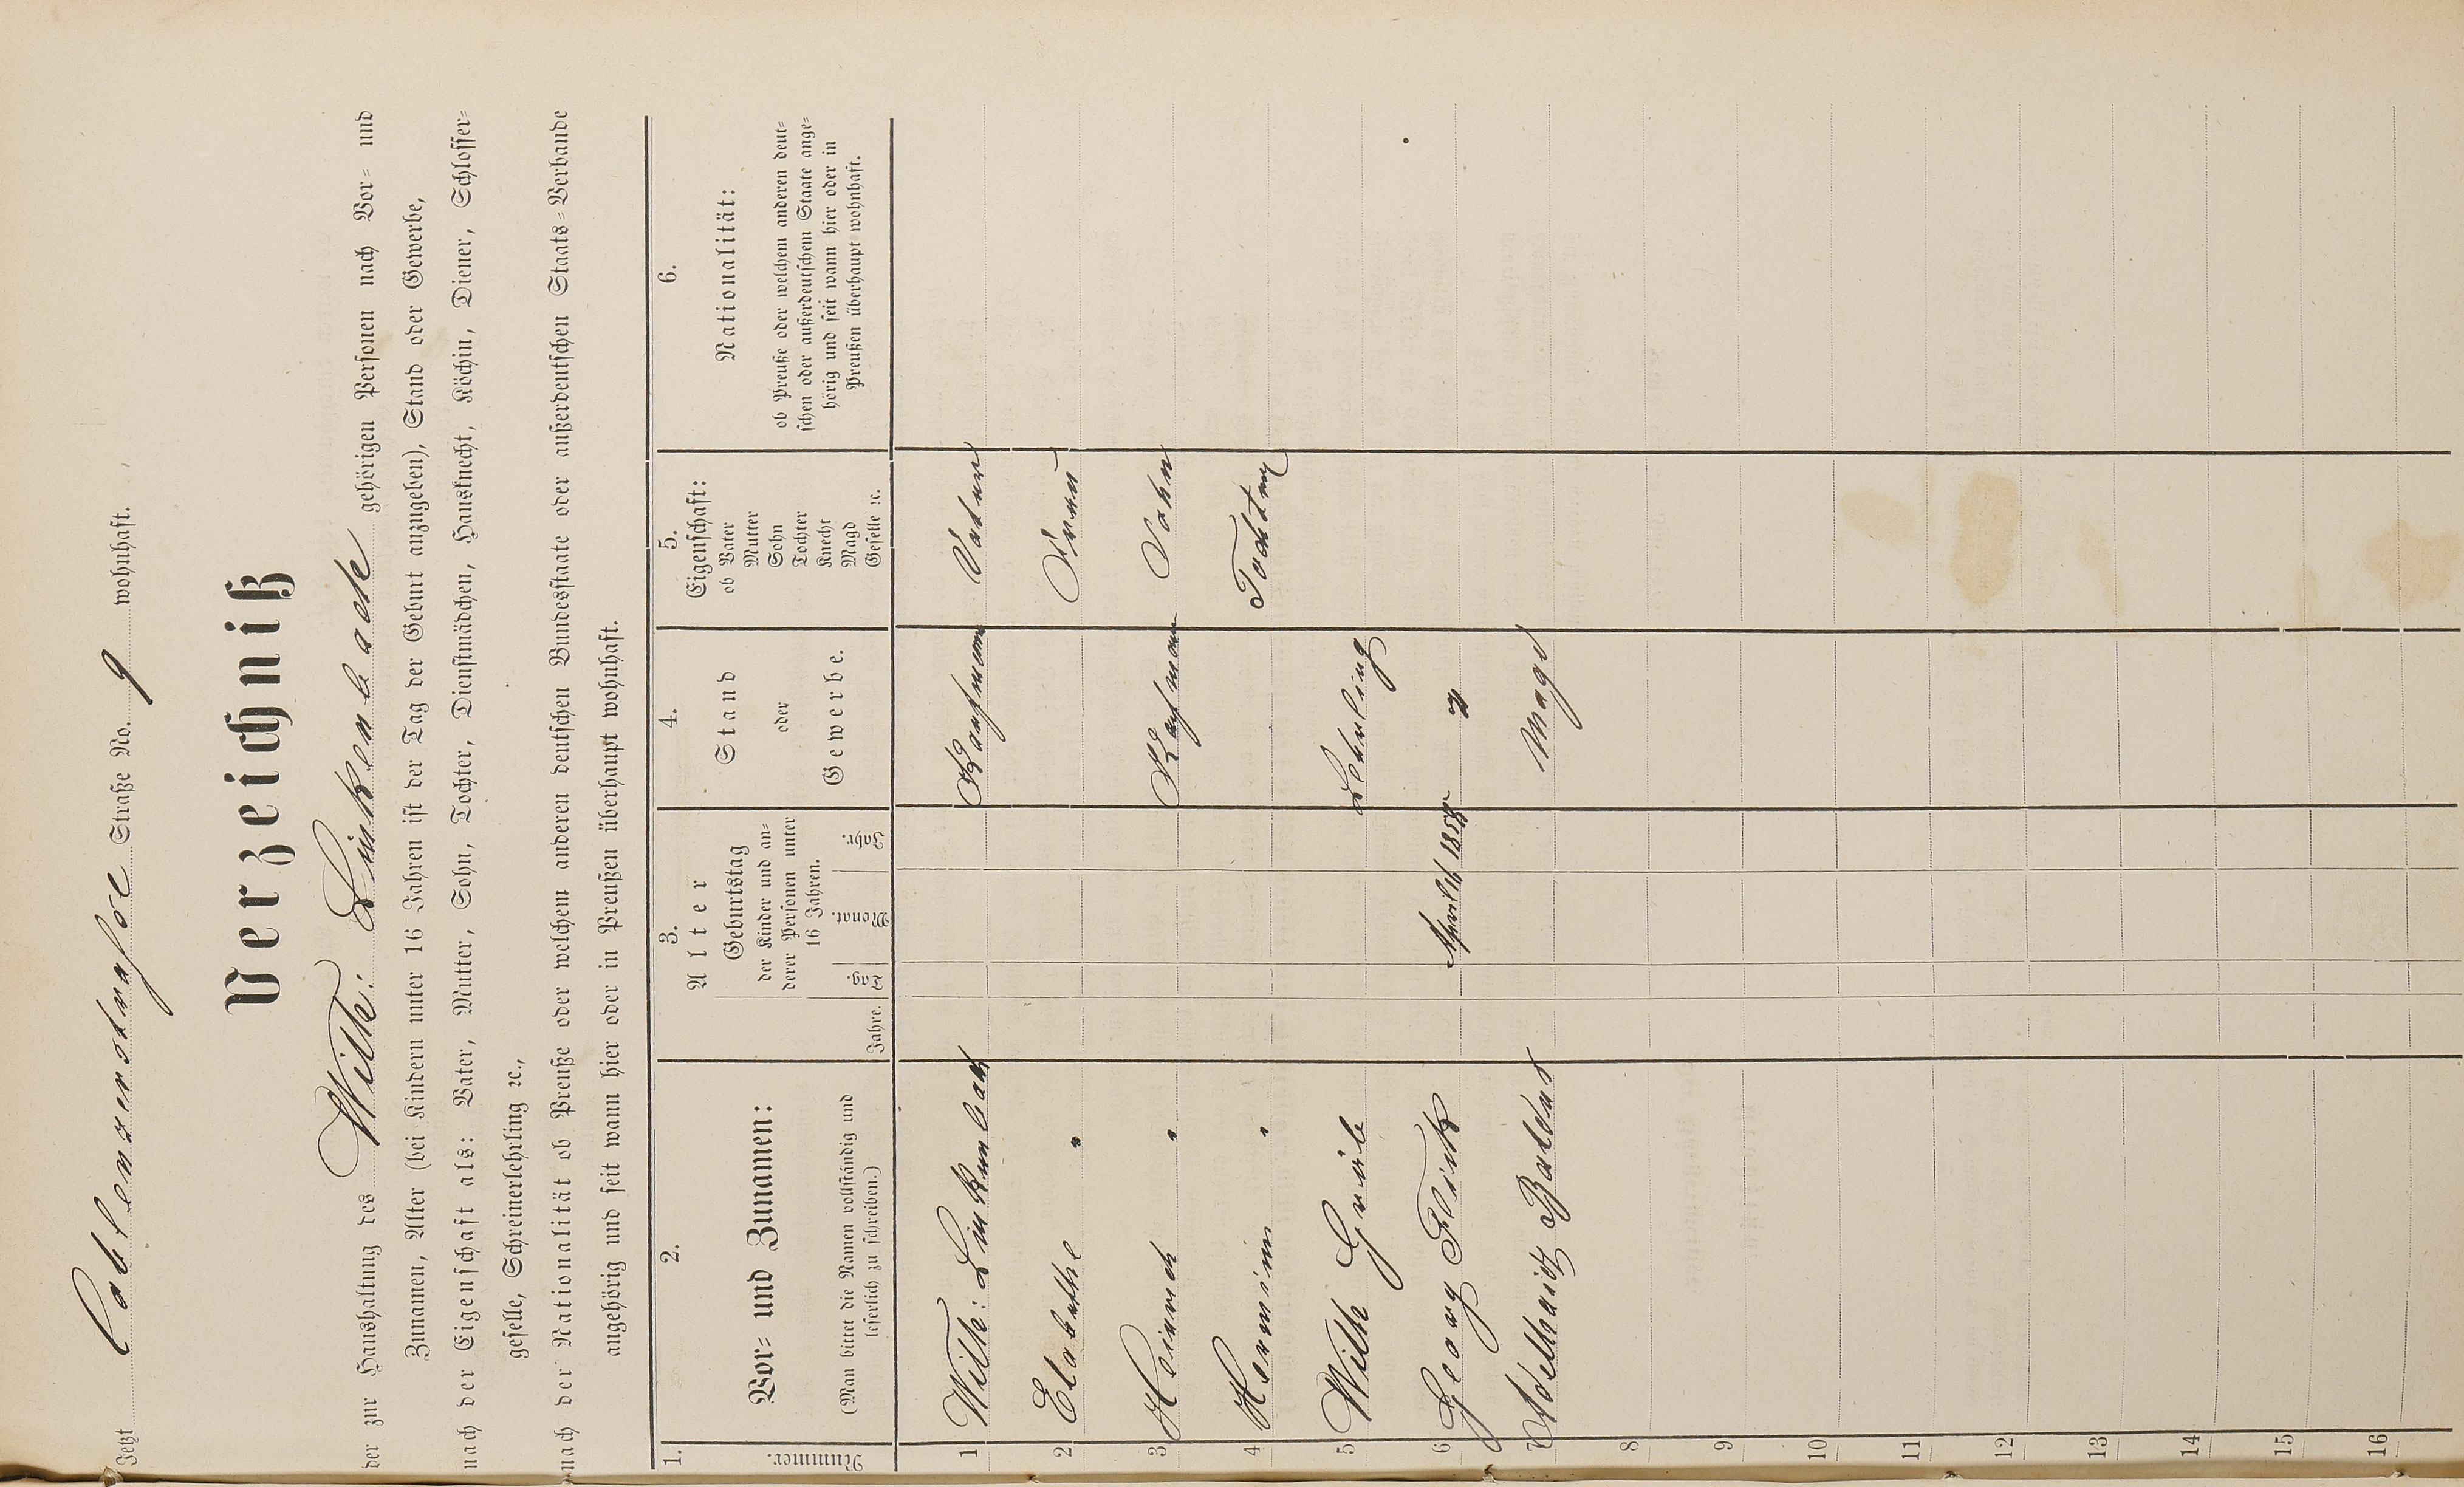 Jetzt Coblenzerstraße Straße No. 9 wohnhaft.
Verzeichniß
der zur Haushaltung des Wilh: Linkenbach gehörigen Personen nach Vor- und
Zunamen, Alter (bei Kindern unter 16 Jahren ist der Tag der Geburt anzugeben), Stand oder Gewerbe,
nach der Eigenschaft als: Vater, Mutter, Sohn, Tochter, Dienstmädchen, Hausknecht, Köchin, Diener, Schlosser-
geselle, Schreinerlehrling ꝛc.,
nach der Nationalität ob Preuße oder welchem anderen deutschen Bundesstaate oder außerdeutschen Staats-Verbande
angehörig und seit wann hier oder in Preußen überhaupt wohnhaft.
1.
Nummer.
2.
Vor- und Zunamen:
(Man bittet die Namen vollständig und
leserlich zu schreiben.)
3.
Alter
Jahre.
Geburtstag
der Kinder und an-
derer Personen unter
16 Jahren.
Tag. Monat. Jahr.
4.
Stand
oder
Gewerbe.
5.
Eigenschaft:
ob Vater
Mutter
Sohn
Tochter
Knecht
Magd
Geselle ꝛc.
6.
Nationalität:
ob Preuße oder welchem anderen deut-
schen oder außerdeutschem Staate ange-
hörig und seit wann hier oder in
Preußen überhaupt wohnhaft.
1 Wilh: Linkenbach Kaufmann Vater
2 Elisabethe " Frau
3 Heinrich " Kaufmann Sohn
4 Hermine " Tochter
5 Wilh Lehrling
6 Georg Flick April "
7 Adelhaid Baldus Magd
8
9
10
11
12
13
14
15
16